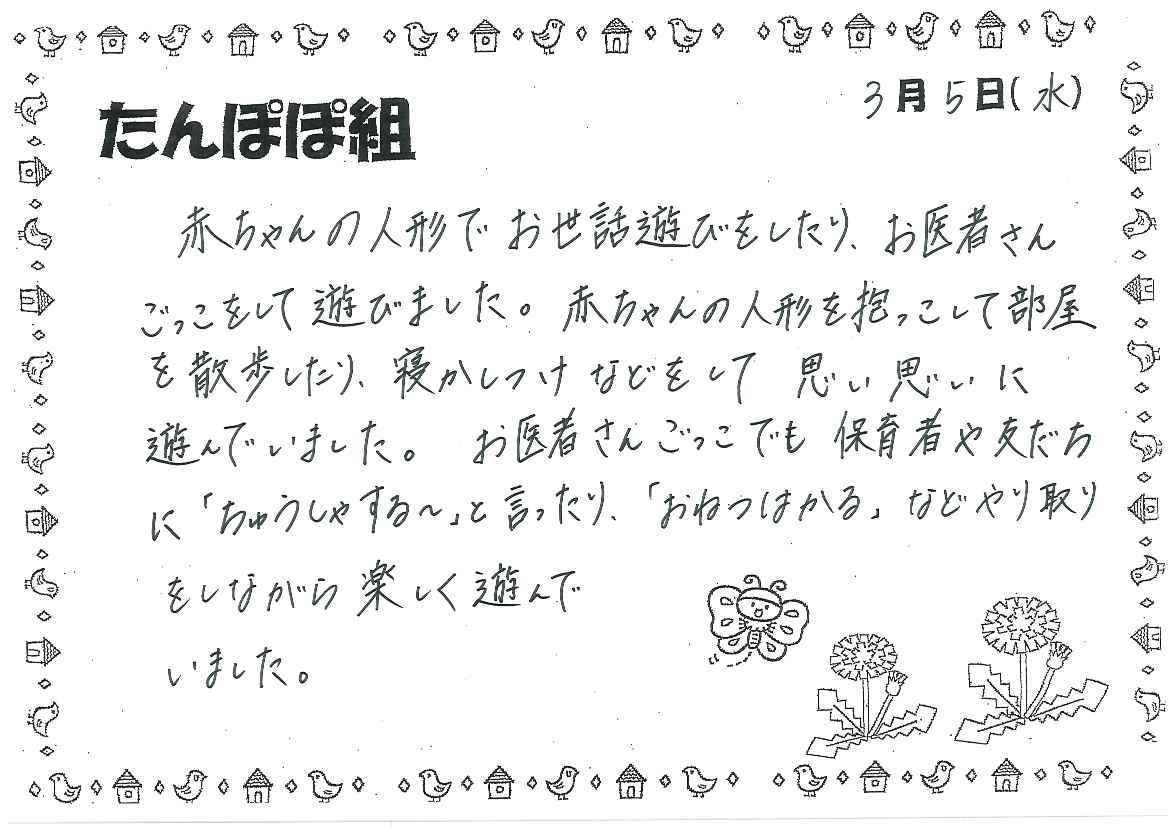 3月5日(水)
たんぽぽ組
赤ちゃんの人形でお世話遊びをしたり、お医者さん
ごっこをして遊びました。赤ちゃんの人形を抱っこして部屋
を散歩したり、寝かしつけなどをして思い思いに
遊んでいました。お医者さんごっこでも保育者や友だち
に「ちゅうしゃする〜」と言ったり、「おねつはかる」などやり取り
をしながら楽しく遊んで
いました。